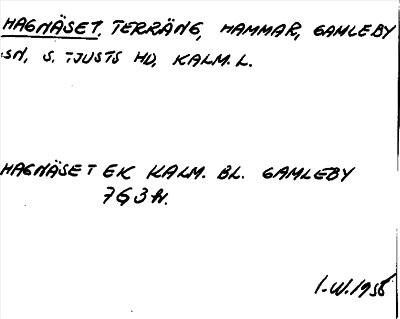 HAGNÄSET, TERRÄNG, HAMMAR, GAMLEBY
SN, S. TJUSTS HD, KALM. L.
HAGNÄSET EK KALM. BL. GAMLEBY
7G3
I.W. 1958